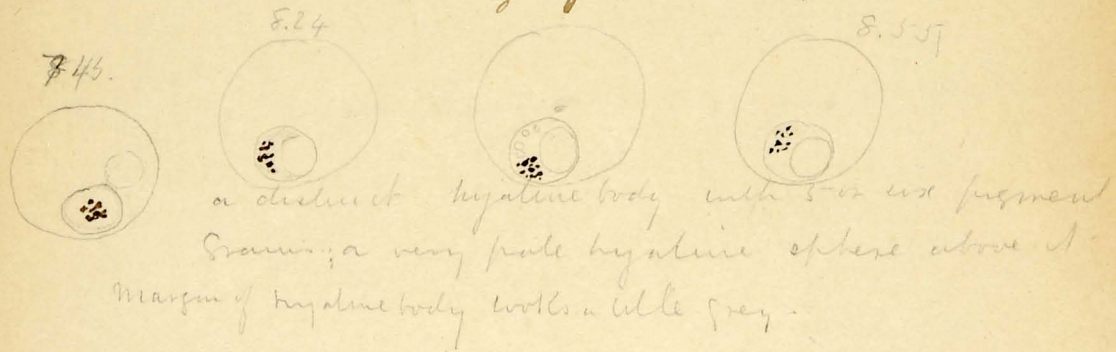 8.24
8.55
45.
a distinct hyaline body with 5 or six pigment
Grains; a very pale hyaline sphere above it
Margin of hyaline body looks a little grey.